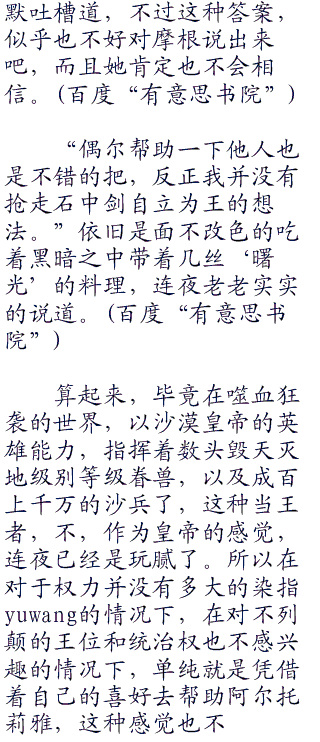 默吐槽道，不过这种答案，
似乎也不好对摩根说出来
吧，而且她肯定也不会相
信。(百度“有意思书院”)
“偶尔帮助一下他人也
是不错的把，反正我并没有
抢走石中剑自立为王的想
法。”依旧是面不改色的吃
着黑暗之中带着几丝‘曙
光’的料理，连夜老老实实
的说道。(百度“有意思书
院”)
算起来，毕竟在噬血狂
袭的世界，以沙漠皇帝的英
雄能力，指挥着数头毁天灭
地级别等级眷兽，以及成百
上千万的沙兵了，这种当王
者，不，作为皇帝的感觉，
连夜已经是玩腻了。所以在
对于权力并没有多大的染指
yuwang的情况下，在对不列
颠的王位和统治权也不感兴
趣的情况下，单纯就是凭借
着自己的喜好去帮助阿尔托
莉雅，这种感觉也不